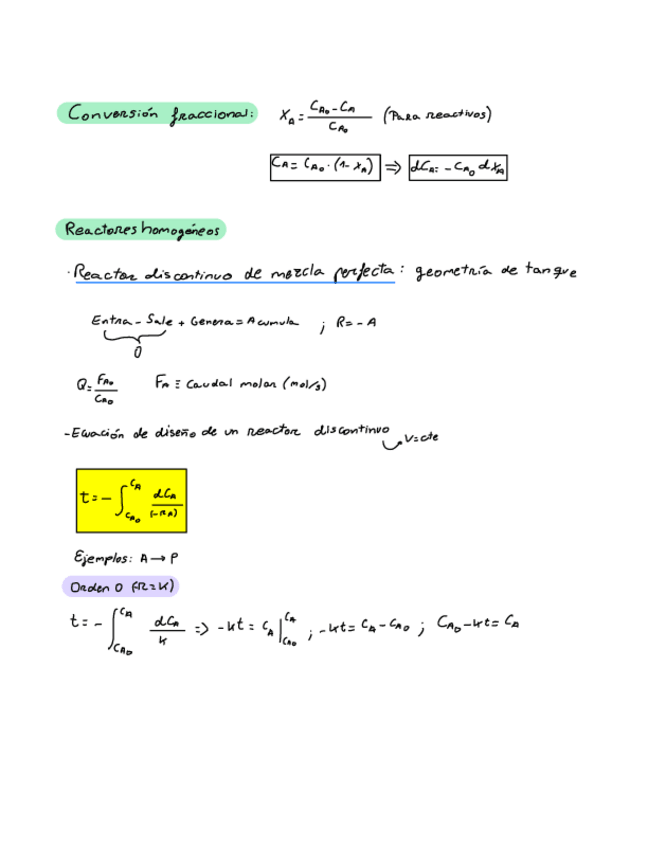 Conversión fraccional: X_A = (C_A0 - C_A) / C_A0 (Para reactivos)
C_A = C_A0 · (1 - X_A) ⇒ dC_A = - C_A0 dX_A
Reactores homogéneos
· Reactor discontinuo de mezcla perfecta: geometría de tanque
Entra - Sale + Genera = Acumula ; R = - A
0
Q = F_A0 / C_A0 F_A ≡ Caudal molar (mol/s)
- Ecuación de diseño de un reactor discontinuo
V = cte
t = - ∫_{C_A0}^{C_A} dC_A / (-r_A)
Ejemplos: A → P
Orden 0 (R = K)
t = - ∫_{C_A0}^{C_A} dC_A / k ⇒ - kt = C_A |_{C_A0}^{C_A} ; - kt = C_A - C_A0 ; C_A0 - kt = C_A